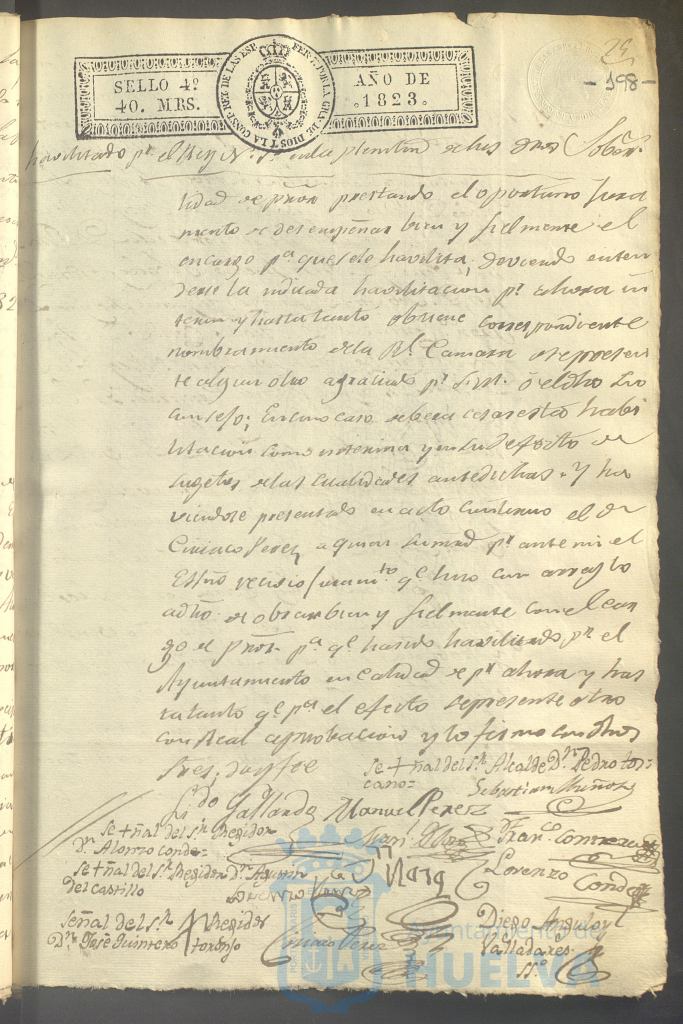 25
- 198 -
SELLO 4º
40. MRS.
FERN. 7. POR LA GRA. DE DIOS Y LA CONST. REY DE LAS ESP.
AÑO DE
1823.
havilitado pr. el Rey N. S. en la plenitud de sus dros Soberª.
lidad de pror prestando el oportuno jura
mento de desempeñar bien y fielmente el
encargo pª que se le havilita, deviendo enten
derse la indicada havilitacion pr. ahora in
terin y hasta tanto obtiene correspondiente
nombramiento de la Rl. Camara o se presen
te algun otro agraciado pr. S. M. ó el dho Su
consejo; En cuyo caso debera cesar esta habi
litacion como interina y en su defecto de
sugetos de las cualidades antedichas. Y ha
viendose presentado en acto continuo el Dn
Ciriaco Perez, a quien su mrd pr. ante mi el
Essno recivio juramto. qe. hizo con arreglo
a dro. de obrar bien y fielmente con el car
go de Pror. pª qe. ha sido havilitado pr. el
Ayuntamiento en calidad de pr. ahora y has
ta tanto qe. pª el efecto represente otro
con Real aprobacion y lo firmo con dhos
Sres, doy fee
Se + ñal del Sr. Alcalde Dn. Pedro tos=
cano=
Sebastian Muñoz
Ldo Gallardo
Manuel Perez
Se + ñal del Sr. Regidor
Dn. Alonzo Conde=
Franco. Contreras
Se + ñal del Sr. Regidor Dn. Agustin
Del castillo
Lorenzo Conde
Señal del Sr. + Regidor
Dn. José Quintero tordojo
Ciriaco Perez
Diego Angulo y
Valladares.
Sº
Ayuntamiento de
HUELVA